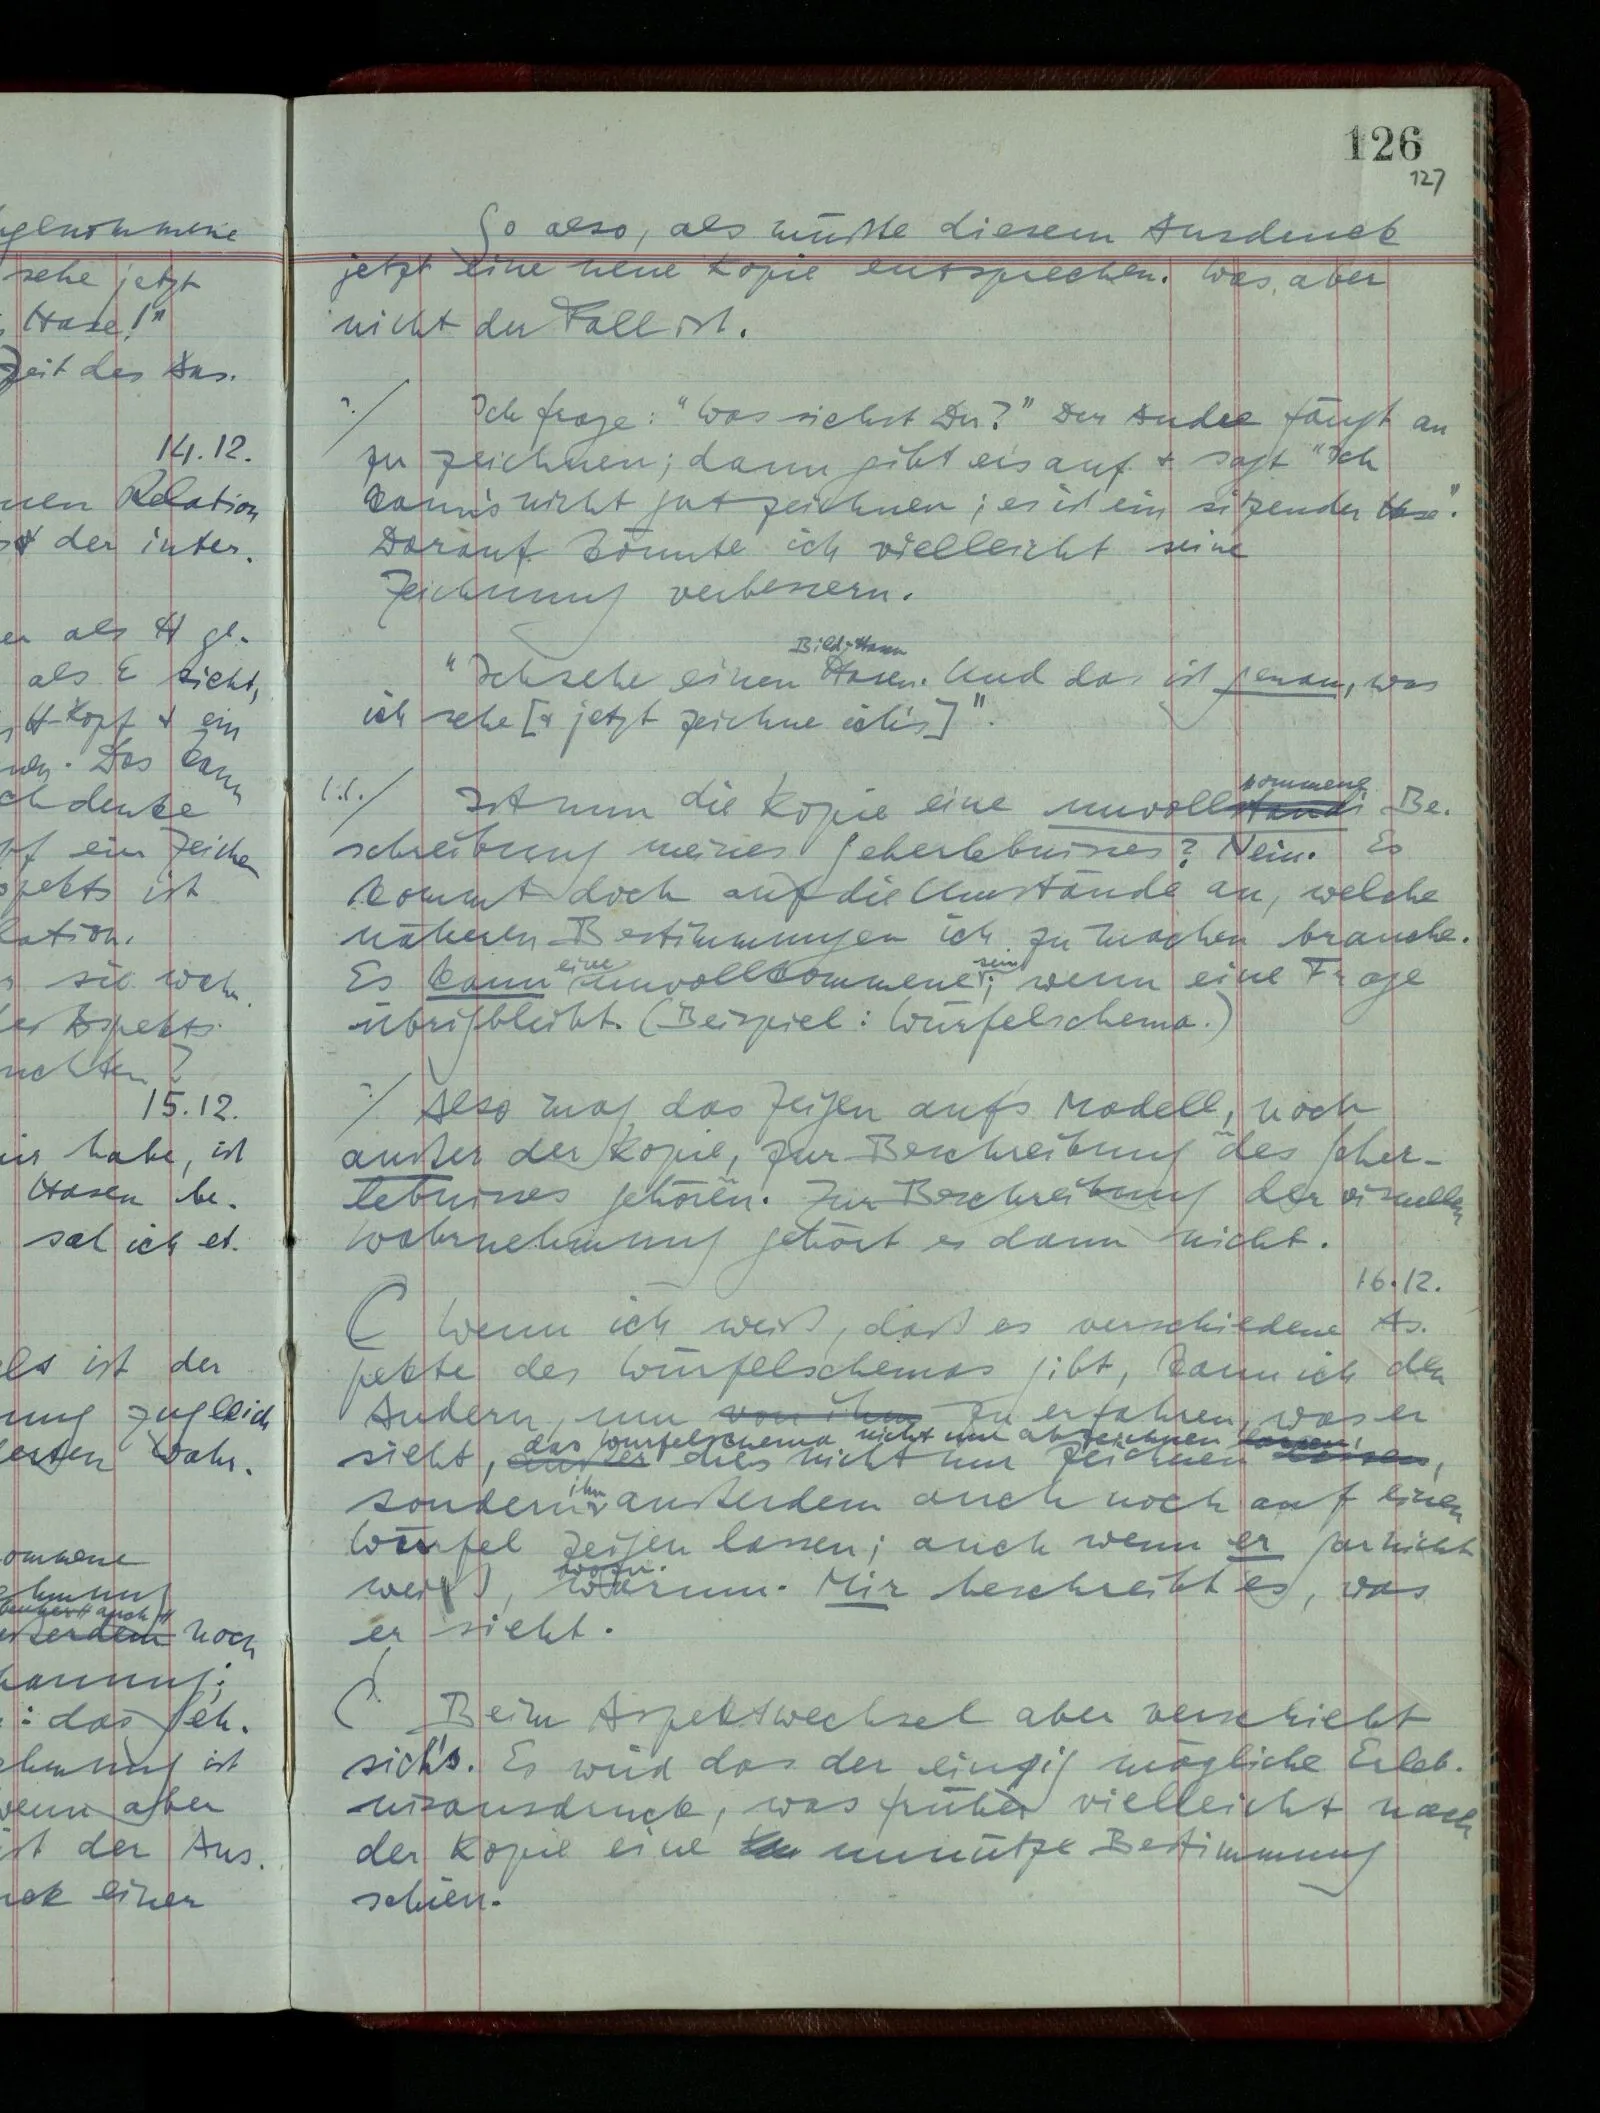 genommene
sehe jetzt
Hase!"
Zeit des Aus.
14.12.
nen Relation
der inter.
er als H ge.
als E sieht,
H-Kopf & ein
Das kann
chdenke
ein Zeichen
spekts ist
lation.
sie wahr.
des Aspekts
uchten?
15.12.
habe, ist
Hasen be.
sah ich et.
ist der
ung zugleich
Wahr.
ommene
ehmung
auch
ßerdem noch
das Seh.
ehmung ist
wenn aber
ist der Aus.
uck einer
126
127
So also, als müßte diesem Ausdruck
jetzt eine neue Kopie entsprechen. Was aber
nicht der Fall ist.
Ich frage: "Was siehst Du?" Der Andre fängt an
zu zeichnen; dann gibt er's auf & sagt "Ich
kann's nicht gut zeichnen; es ist ein sitzender Hase".
Darauf könnte ich vielleicht seine
Zeichnung verbessern.
Bild-Hasen
"Ich sehe einen Hasen. Und das ist genau, was
ich sehe [& jetzt zeichne ich's]".
kommene
Ist nun die Kopie eine unvollständi Be.
schreibung meines Seherlebnisses? Nein. Es
kommt doch auf die Umstände an, welche
näheren Bestimmungen ich zu machen brauche.
eine sein
Es kann unvollkommene; wenn eine Frage
übrigbleibt. (Beispiel: Würfelschema.)
Also mag das Zeigen auf's Modell, noch
außer der Kopie, zur Beschreibung des Seher-
lebnisses gehören. Zur Beschreibung der visuellen
Wahrnehmung gehört es dann nicht.
16.12.
Wenn ich weiß, daß es verschiedene As.
pekte des Würfelschemas gibt, kann ich den
Andern, um von ihm zu erfahren, was er
das Würfelschema nicht nur abzeichnen lassen,
sieht, außer dies nicht nur zeichnen lassen,
ihn
sondern außerdem auch noch auf einen
Würfel zeigen lassen; auch wenn er garnicht
wozu.
weiß, warum. Mir beschreibt es, was
er sieht.
Beim Aspektwechsel aber verschiebt
sich's. Es wird das der einzig mögliche Erleb.
nisausdruck, was früher vielleicht nach
der Kopie eine unnütze Bestimmung
schien.